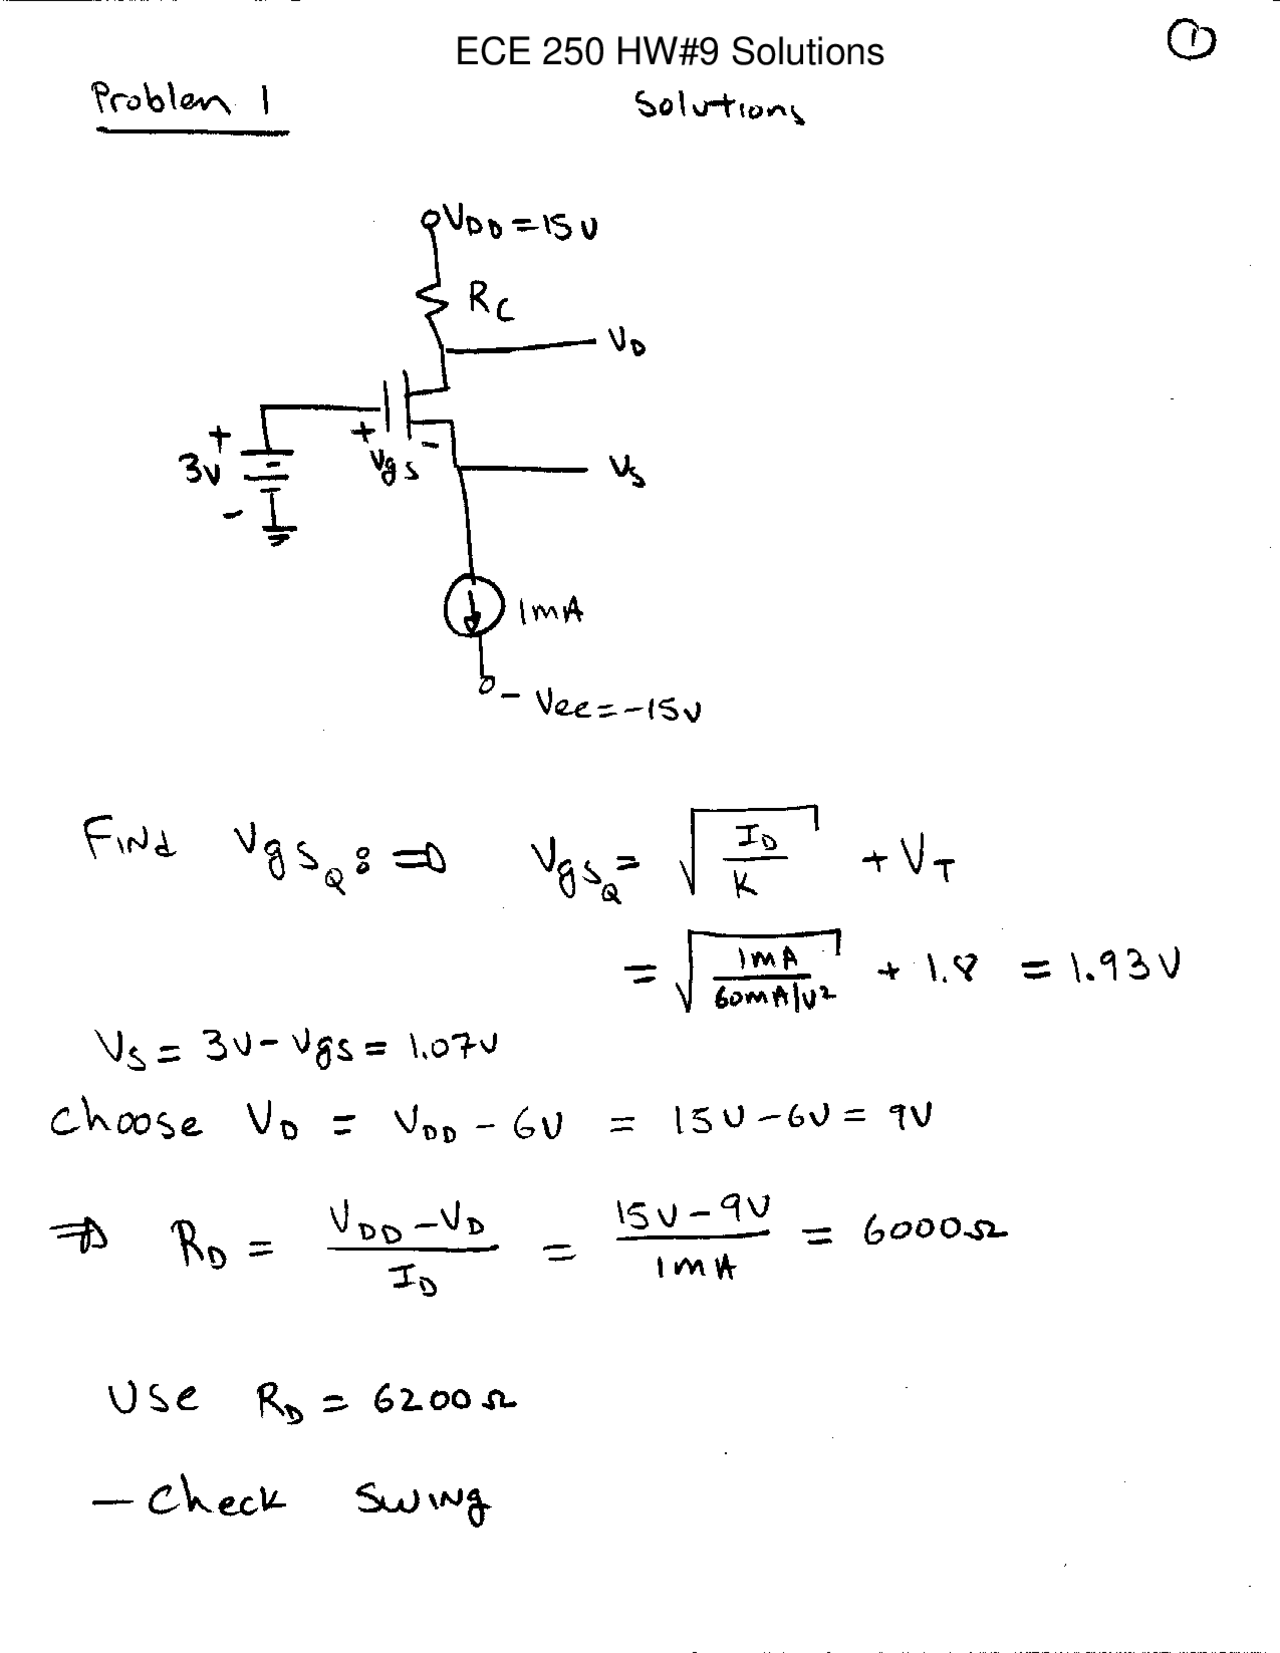 ECE 250 HW#9 Solutions
①
Problem 1
Solutions
VDD = 15V
RC
VD
+
3V
-
+ Vgs -
VS
1mA
- Vee = -15V
Find VgsQ: ⇒ VgsQ = √(ID/K) + VT
= √(1mA/60mA/V²) + 1.8 = 1.93V
VS = 3V - Vgs = 1.07V
Choose VD = VDD - 6V = 15V - 6V = 9V
⇒ RD = (VDD - VD)/ID = (15V - 9V)/1mA = 6000Ω
Use RD = 6200Ω
- Check Swing